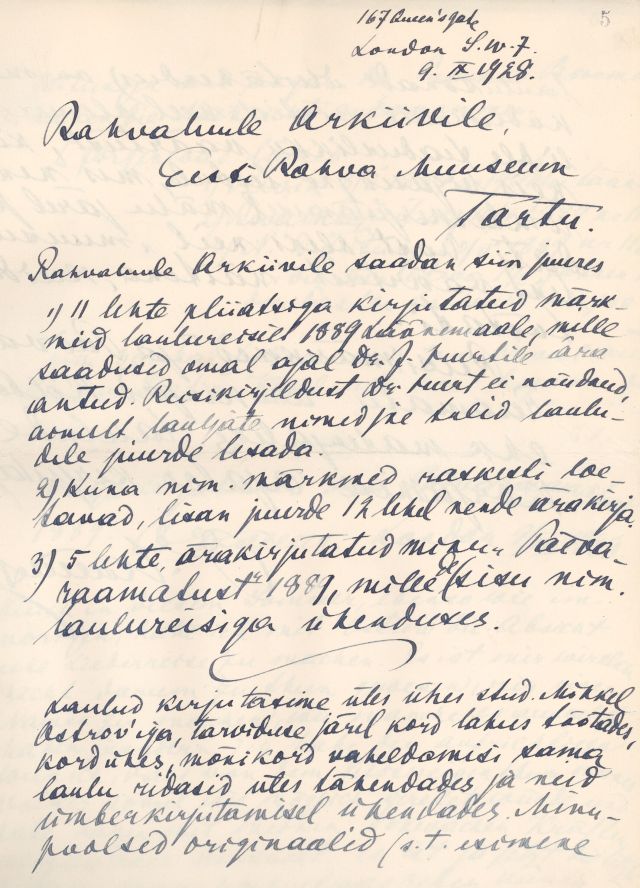 5
167 Queen'sgate
London S.W.7.
9. IX 1928.
Rahvaluule Arkiivile,
Eesti Rahva Muuseum
Tartu.
Rahvaluule Arkiivile saadan siin juures
1) 11 lehte pliiatsiga kirjutatud märk-
meid laulureisilt 1889 Läänemaale, mille
saadused omal ajal Dr. J. Hurtile ära
antud. Reisikirjeldust Dr. Hurt ei nõudnud,
ainult lauljate nimed jne tulid laulu-
dele juurde lisada.
2) Kuna nim. märkmed raskesti loe-
tavad, lisan juurde 12 lehel nende ärakirja.
3) 5 lehte, ärakirjutatud minu „Päeva-
raamatust" 1889, mille sisu nim.
laulureisiga ühenduses.
Laulud kirjutasime üles ühes stud. Mihkel
Ostrov'iga, tarviduse järel kord lahus töötades,
kord ühes, mõnikord vaheldamisi sama
laulu ridasid üles tähendades ja neid
ümberkirjutamisel ühendades. Minu-
poolsed originaalid (s.t. esimene